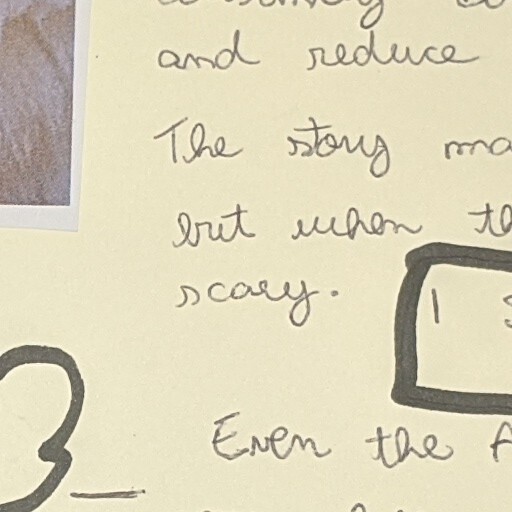 and reduce
The story
but when
scary.
1
3
Even the